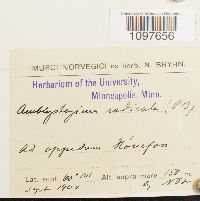 1097656
MUSCI NORVEGICI ex herb. N. BRYHN.
Herbarium of the University,
Minneapolis, Minn.
Amblystegium radicale (P.B.)
Ad oppidum Hönefos
Lat. sept. 60°
Alt. supra mare 150 m.
Sept.